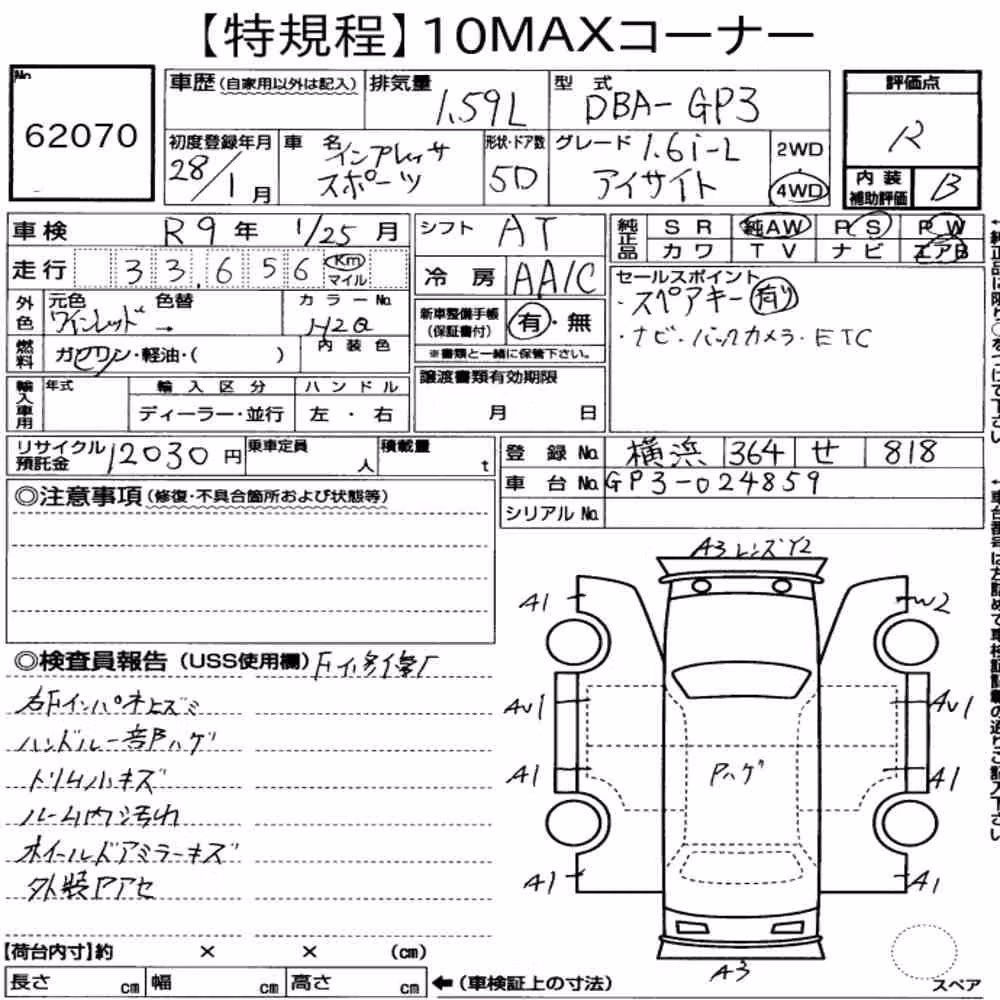 【特規程】10MAXコーナー
No.
62070
車歴 (自家用以外は記入)
排気量
1.59L
型式
DBA-GP3
評価点
R
初度登録年月
28/1月
車名
インプレッサ
スポーツ
形状・ドア数
5D
グレード
1.6i-L
アイサイト
2WD
4WD
内装
補助評価
B
車検
R9年 1/25月
シフト
AT
純正品
SR
純AW
PS
PW
カワ
TV
ナビ
エアB
走行
33,656
Km
マイル
冷房
AA/C
セールスポイント
・スペアキー有り
・ナビ・バックカメラ・ETC
外色
元色
ワインレッド
色替
→
カラーNo.
H2Q
新車整備手帳
(保証書付)
有・無
※書類と一緒に保管下さい。
燃料
ガソリン・軽油・( )
内装色
輸入車用
年式
輸入区分
ディーラー・並行
ハンドル
左・右
譲渡書類有効期限
月 日
リサイクル
預託金
12030円
乗車定員
人
積載量
t
登録No.
横浜 364 せ 818
車台No.
GP3-024859
シリアルNo.
◎注意事項 (修復・不具合箇所および状態等)
◎検査員報告 (USS使用欄)
ハンドル一部ハゲ
トリム小キズ
ルーム内汚れ
ホイールドアミラーキズ
A3 レンズY2
A1
W2
A1
A1
Pハゲ
A1
A1
A3
【荷台内寸】約 × × (cm)
長さ cm
幅 cm
高さ cm
←(車検証上の寸法)
スペア